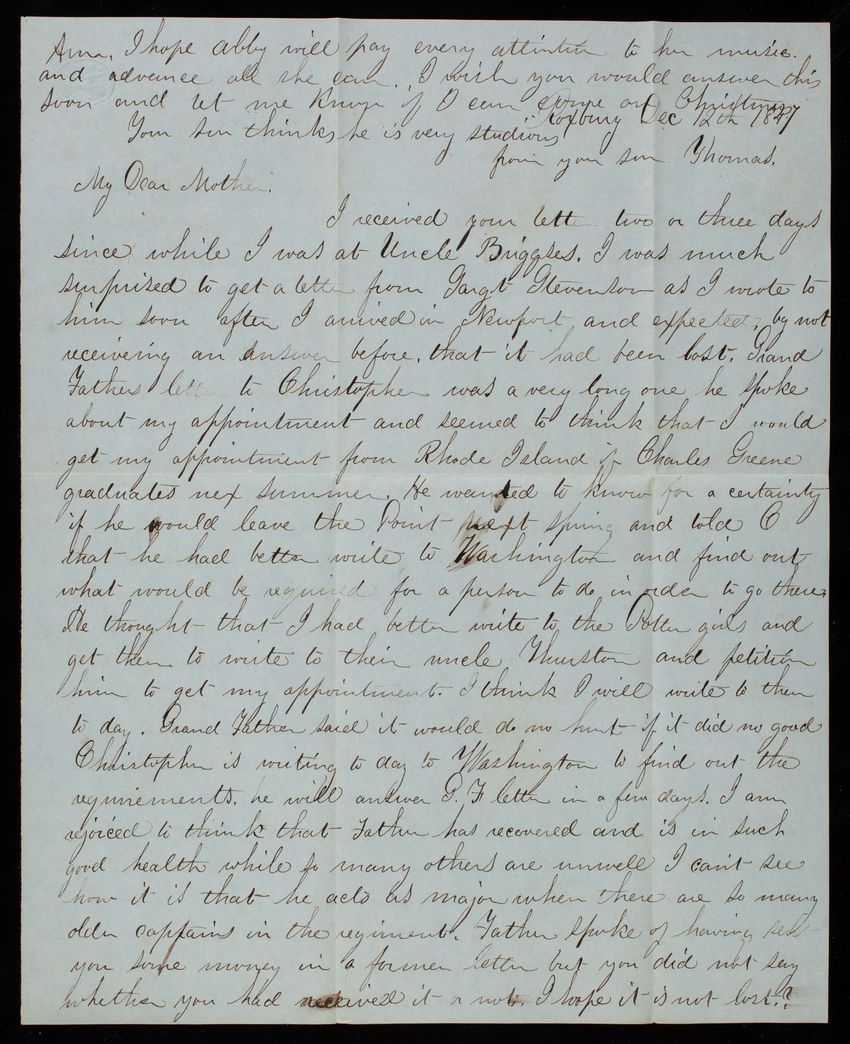 Ann. I hope Abby will pay every attention to her music.
and advance all she can. I wish you would answer this
soon and let me know if I can come on Christmas
Roxbury Dec 12th 1847
Your son thinks he is very studious
from your son Thomas.
My Dear Mother.
I received your letter two or three days
since while I was at Uncle Briggses. I was much
surprised to get a letter from Sargt Stevenson as I wrote to
him soon after I arrived in Newport and expected, by not
receivering an answer before, that it had been lost. Grand
Fathers letter to Christopher was a very long one he spoke
about my appointment and seemed to think that I would
get my appointment from Rhode Island if Charles Greene
graduates nex summer. He wanted to know for a certainty
if he would leave the Point next spring and told C
that he had better write to Washington and find out
what would be required for a person to do in order to go there.
He thought that I had better write to the Potter girls and
get them to write to their uncle Thurston and petition
him to get my appointment. I think I will write to them
to day. Grand Father said it would do no hurt if it did no good
Christopher is writing to day to Washington to find out the
requirements. he will answer G. F letter in a few days. I am
rejoiced to think that Father has recovered and is in such
good health while so many others are unwell I can't see
how it is that he acts as major when there are so many
older captains in the regiment. Father spoke of having sent
you some money in a former letter but you did not say
whether you had received it or not. I hope it is not lost.?